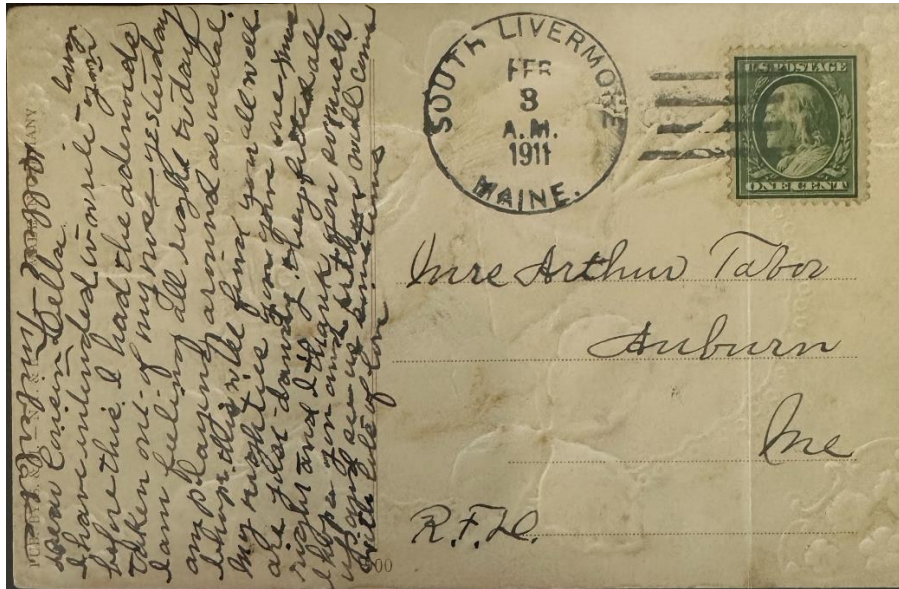 Dear Cousin Della.
I have intended to write you long
before this. I had the adenoids
taken out of my nose yesterday
I am feeling all right today
am playing around as usual.
I hope this will find you all well
My nighties you gave me Xmas
are just dandy. they fitted all
right and I thank you so much
I hope you and Arthur will come
up and see us sometime
with lots of love
SOUTH LIVERMORE
FEB
3
A.M.
1911
MAINE.
U.S. POSTAGE
ONE CENT
Mrs Arthur Tabor
Auburn
Me
R.F.D.